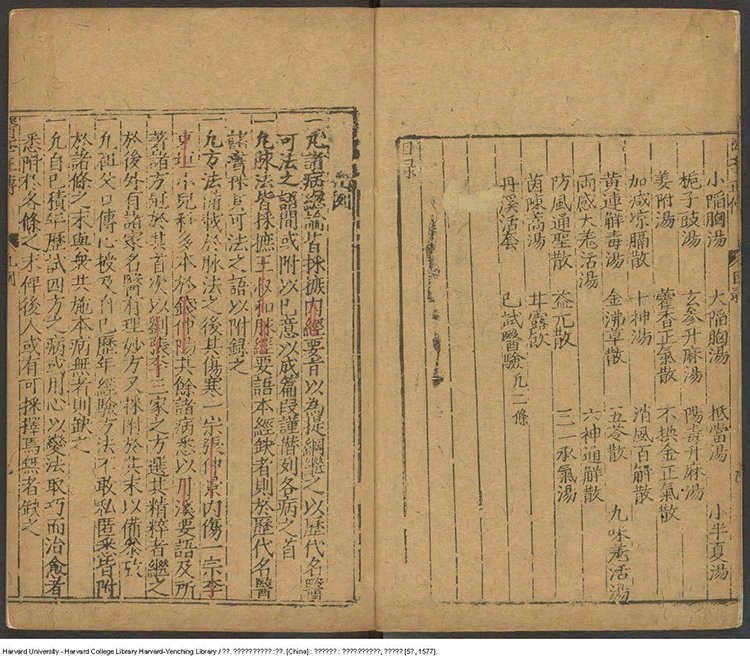 小陷胸湯 大陷胸湯 抵當湯 小半夏湯
梔子豉湯 玄參升麻湯 陽毒升麻湯
姜附湯 藿香正氣散 不換金正氣散
加減凉膈散 十神湯 消風百解散
黃連解毒湯 金沸草散 五苓散 九味羗活湯
兩感大羗活湯 六神通解散
防風通聖散 益元散 三一承氣湯
茵陳蒿湯 甘露飲
丹溪活套 已試醫驗凢二條
目录
凡例
一凡諸病總論皆採摭内經要旨以為提綱繼之以歷代名醫
可法之語間或附以己意以成篇段謹僣列各病之首
一凢脉法皆採摭王叔和脉經要語本經缺者則於歷代名醫
諸書採其可法之語以附録之
一凢方法滿載於脉法之後其傷寒一宗張仲景内傷一宗李
東垣小兒科多本於錢仲陽其餘諸病悉以丹溪要語及所
著諸方冠於其首次以劉張李三家之方選其精粹者繼之
於後外有諸家名醫有理妙方又採附於其末以備叅攷
一凢祖父口傳心授及自己歷年經驗方法不敢私匿悉皆附
於諸條之末與衆共施本病無者則缺之
一凢自己積年歷試四方之病或用心以變法取巧而治愈者
悉附於各條之末俾後人或有可採擇焉無者缺之
Harvard University - Harvard College Library Harvard-Yenching Library / ??. ?????????? :??. [China] : ?????? : ??????????, ????? [5?, 1577].